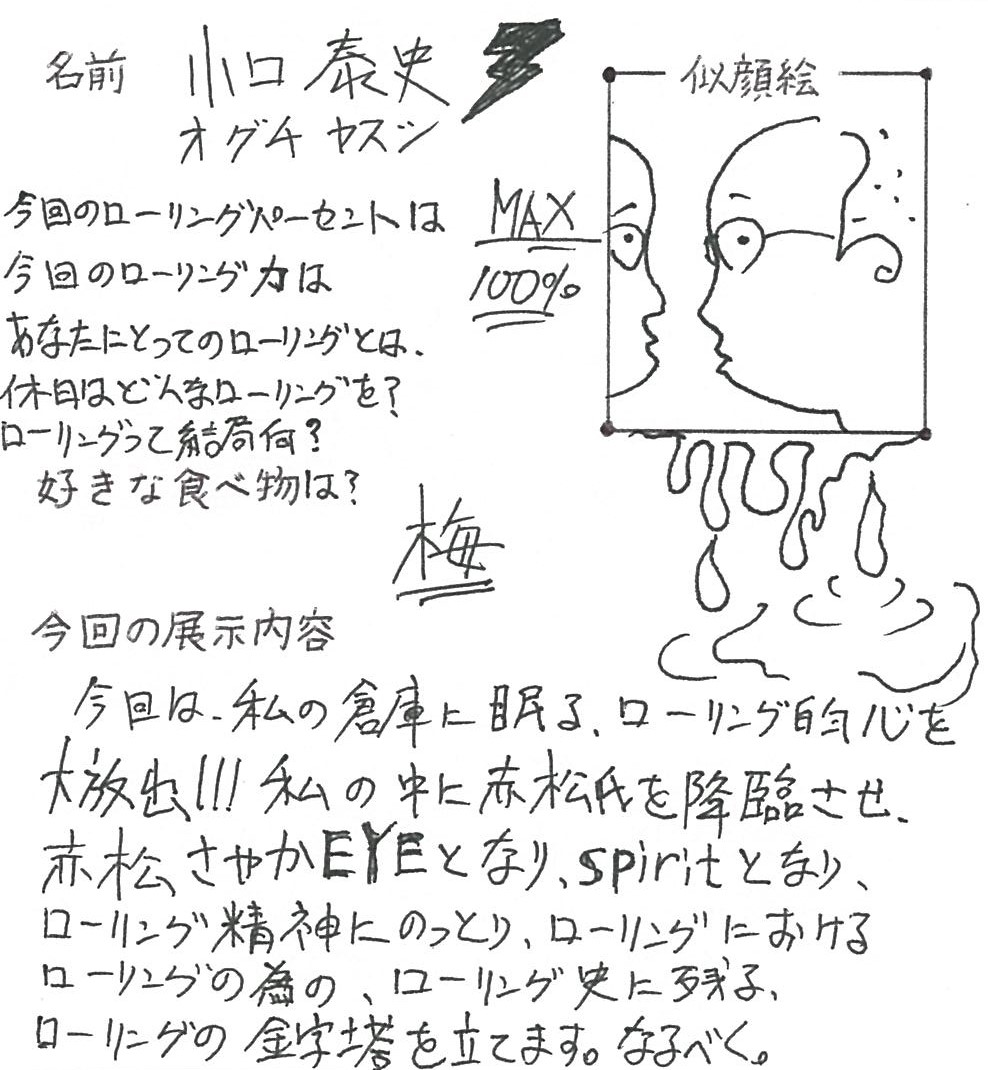 名前 小口 泰史
オグチ ヤスシ
似顔絵
今回のローリングパーセントは MAX
100%
今回のローリング力は
あなたにとってのローリングとは、
休日はどんなローリングを?
ローリングって結局何?
好きな食べ物は?
梅
今回の展示内容
今回は、私の倉庫に眠る、ローリング的心を
大放出!!!私の中に赤松氏を降臨させ、
赤松さやかEYEとなり、spiritとなり、
ローリング精神にのっとり、ローリングにおける
ローリングの為の、ローリング史に残る、
ローリングの金字塔を立てます。なるべく。